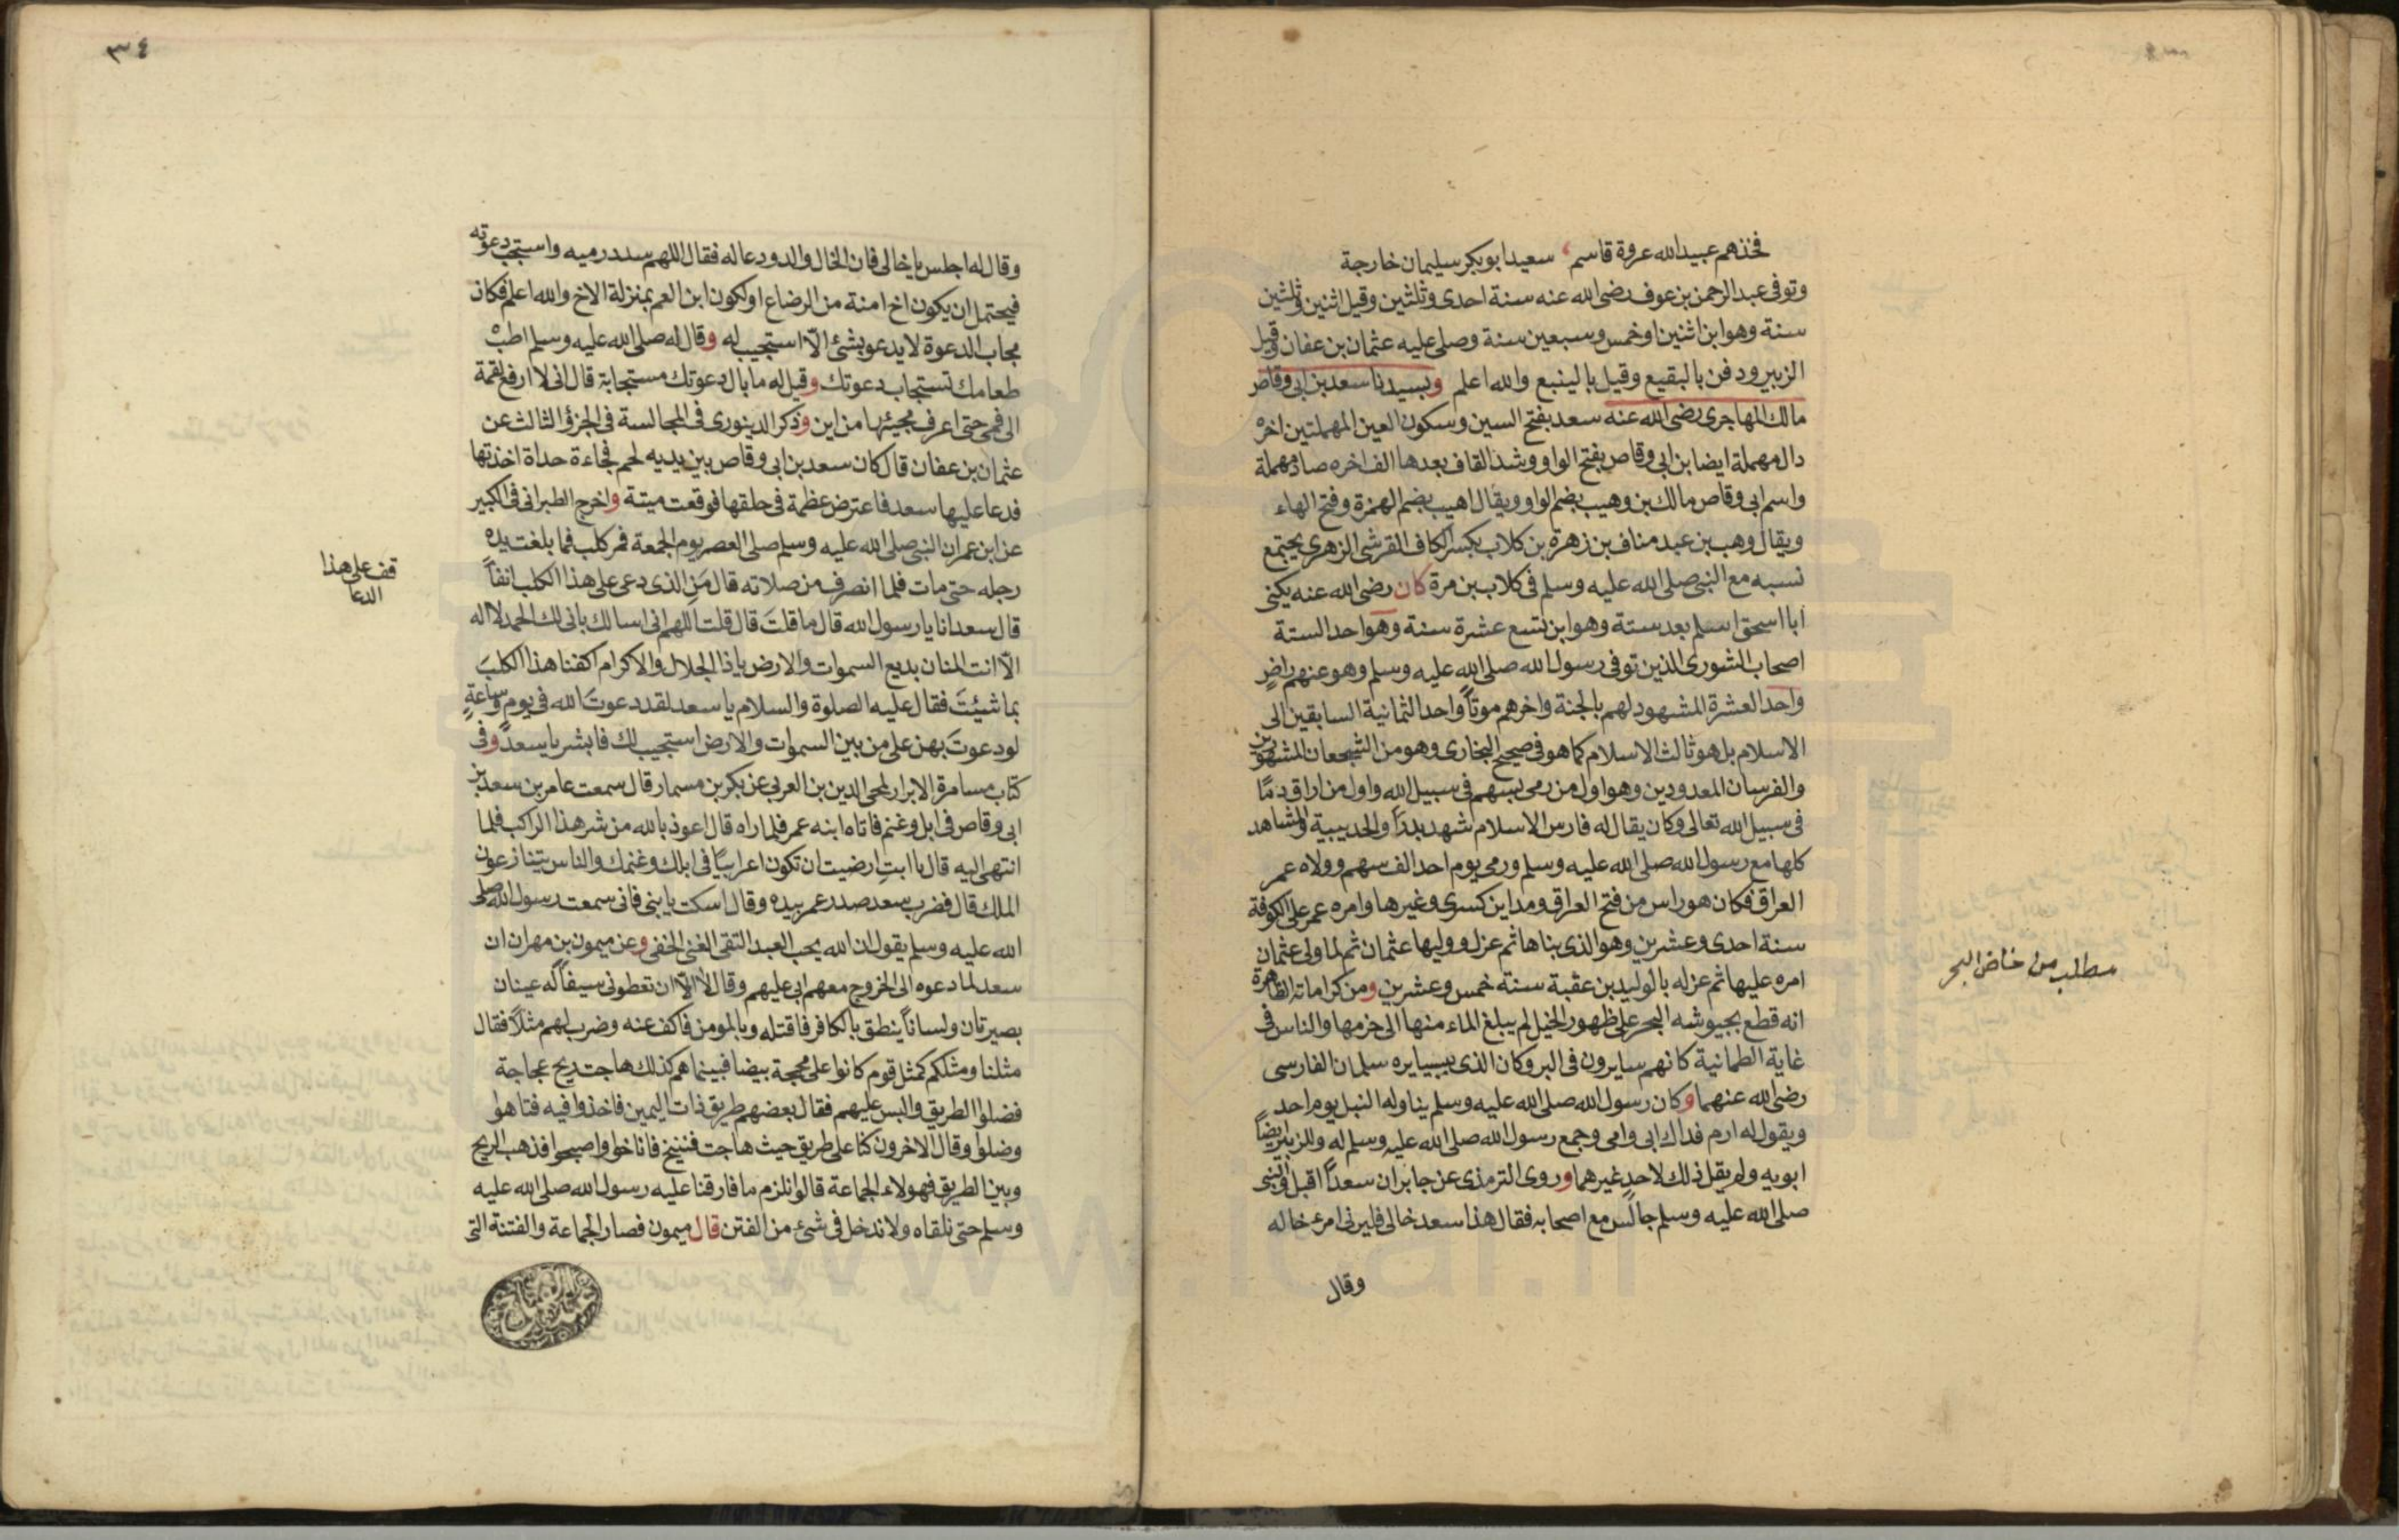 فخذهم عبيد الله عروة قاسم سعيد ابو بكر سليمان خارجة
وتوفى عبد الرحمن بن عوف رضى الله عنه سنة احدى وثلثين وقيل اثنين وثلثين
سنة وهو ابن اثنين او خمس وسبعين سنة وصلى عليه عثمان بن عفان وقيل
الزبير ودفن بالبقيع وقيل بالينبع والله اعلم وبسيدنا سعد بن ابى وقاص
مالك المهاجرى رضى الله عنه سعد بفتح السين وسكون العين المهملتين اخره
دال مهملة ايضا بن ابى وقاص بفتح الواو وشد القاف بعدها الف اخره صاد مهملة
واسم ابى وقاص مالك بن وهيب بضم الواو ويقال اهيب بضم الهمزة وفتح الهاء
ويقال وهب بن عبد مناف بن زهرة بن كلاب بكسر الكاف القرشى الزهرى يجتمع
نسبه مع النبى صلى الله عليه وسلم فى كلاب بن مرة كان رضى الله عنه يكنى
ابا اسحق اسلم بعد ستة وهو ابن تسع عشرة سنة وهو احد الستة
اصحاب الشورى الذين توفى رسول الله صلى الله عليه وسلم وهو عنهم راضٍ
واحد العشرة المشهود لهم بالجنة واخرهم موتاً واحد الثمانية السابقين الى
الاسلام بل هو ثالث الاسلام كما هو فى صحيح البخارى وهو من الشجعان المشهورين
والفرسان المعدودين وهو اول من رمى بسهم فى سبيل الله واول من اراق دمًا
فى سبيل الله تعالى وكان يقال له فارس الاسلام شهد بدراً والحديبية والمشاهد
كلها مع رسول الله صلى الله عليه وسلم ورمى يوم احد الف سهم وولاه عمر
العراق فكان هو راس من فتح العراق ومداين كسرى وغيرها وامره عمر على الكوفة
سنة احدى وعشرين وهو الذى بناها ثم عزل ووليها عثمان ثم لما ولى عثمان
امره عليها ثم عزله بالوليد بن عقبة سنة خمس وعشرين ومن كراماته الظاهرة
انه قطع بجيوشه البحر على ظهور الخيل لم يبلغ الماء منها الى حزمها والناس فى
غاية الطمانية كانهم سايرون فى البر وكان الذى يسايره سلمان الفارسى
رضى الله عنهما وكان رسول الله صلى الله عليه وسلم يناوله النبل يوم احد
ويقول له ارم فداك ابى وامى وجمع رسول الله صلى الله عليه وسلم له وللزبير ايضاً
ابويه ولم يقل ذلك لاحد غيرهما وروى الترمذى عن جابر ان سعداً اقبل والنبى
صلى الله عليه وسلم جالس مع اصحابه فقال هذا سعد خالى فليرنى امرء خاله
وقال
مطلب من خاض البحر
٣٤
وقال له اجلس يا خالى فان الخال والد ودعا له فقال اللهم سدد رميه واستجب دعوته
فيحتمل ان يكون اخ امنة من الرضاع او لكون ابن العم بمنزلة الاخ والله اعلم فكان
مجاب الدعوة لا يدعو بشئ الّا استجيب له وقال له صلى الله عليه وسلم اطب
طعامك تستجاب دعوتك وقيل له ما بال دعوتك مستجابة قال انى لا ارفع لقمة
الى فمى حتى اعرف مجيئها من اين وذكر الدينورى فى المجالسة فى الجزؤ الثالث عن
عثمان بن عفان قال كان سعد بن ابى وقاص بين يديه لحم فجاءة حداة اخذتها
فدعا عليها سعد فاعترض عظمة فى حلقها فوقعت ميتة واخرج الطبرانى فى الكبير
عن ابن عمر ان النبى صلى الله عليه وسلم صلى العصر يوم الجمعة فمر كلب فما بلغت يده
رجله حتى مات فلما انصرف من صلاته قال مَن الذى دعى على هذا الكلب انفاً
قال سعد انا يا رسول الله قال ما قلتَ قال قلت اللهم انى اسالك بانى لك الحمد لا اله
الّا انت المنان بديع السموات والارض يا ذا الجلال والاكرام اكفنا هذا الكلبَ
بما شئِتَ فقال عليه الصلوة والسلام يا سعد لقد دعوتَ الله فى يوم وساعةٍ
لو دعوتَ بهن على من بين السموات والارض استجيب لك فابشر يا سعد وفى
كتاب مسامرة الابرار لمحى الدين بن العربى عن بكر بن مسمار قال سمعت عامر بن سعد بن
ابى وقاص فى ابل وغنم فاتاه ابنه عمر فلما راه قال اعوذ بالله من شر هذا الراكب فلما
انتهى اليه قال يا ابتِ ارضيت ان تكون اعرابيًا فى ابلك وغنمك والناس يتنازعون
الملك قال فضرب سعد صدر عمر بيده وقال اسكت يا بنى فانى سمعت رسول الله صلى
الله عليه وسلم يقول ان الله يحب العبد التقى الغنى الخفى وعن ميمون بن مهران ان
سعد لما دعوه الى الخروج معهم ابى عليهم وقال لا الّا ان تعطونى سيفاً له عينان
بصيرتان ولساناً ينطق بالكافر فاقتله وبالمومن فاكف عنه وضرب لهم مثلاً فقال
مثلنا ومثلكم كمثل قوم كانوا على محجة بيضا فبينما هم كذلك هاجت ريح عجاجة
فضلوا الطريق والبس عليهم فقال بعضهم طريق ذات اليمين فاخذوا فيه فتاهوا
وضلوا وقال الاخرون كنا على طريق حيث هاجت فننيخ فاناخوا واصبحوا فذهب الريح
وبين الطريق فهولاء الجماعة قالوا نلزم ما فارقنا عليه رسول الله صلى الله عليه
وسلم حتى نلقاه ولا ندخل فى شئ من الفتن قال ميمون فصار الجماعة والفتنة التى
قف على هذا
الدعا